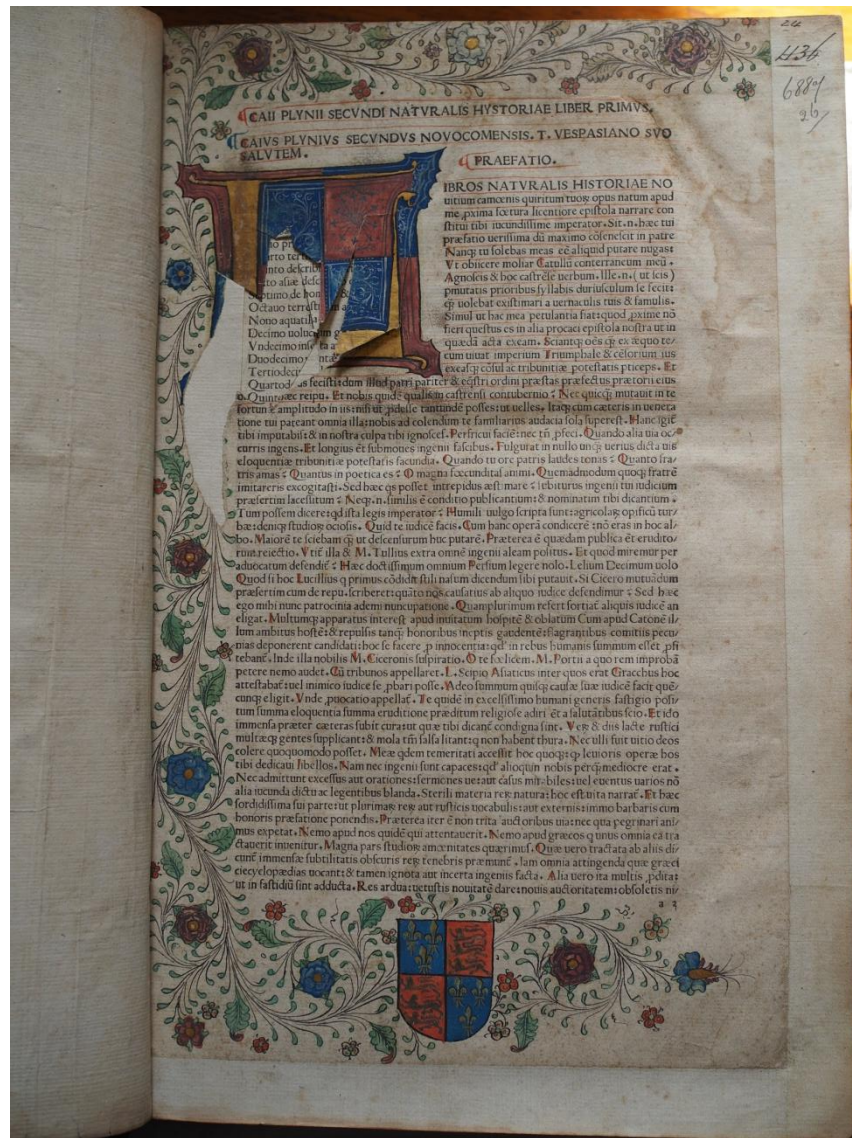 24
436
6889
26
CAII PLYNII SECVNDI NATVRALIS HYSTORIAE LIBER PRIMVS.
CAIVS PLYNIVS SECVNDVS NOVOCOMENSIS. T. VESPASIANO SVO
SALVTEM.
PRAEFATIO.
IBROS NATVRALIS HISTORIAE NO
uitium camœnis quiritum tuoꝝ opus natum apud
me ꝓxima fœtura licentiore epistola narrare con
stitui tibi iucundissime imperator. Sit.n.hæc tui
præfatio uerissima dū maximo cōsenescit in patre
Nanqꝫ tu solebas meas eē aliquid putare nugas:
Vt obiicere moliar Catullū conterraneum meū.
Agnoscis & hoc castrēse uerbum. Ille.n.(ut scis)
pmutatis prioribus syllabis duriusculum se fecit:
ꝙ uolebat existimari a uernaculis tuis & famulis.
Simul ut hac mea petulantia fiat: quod ꝓxime nō
fieri questus es in alia procaci epistola nostra ut in
quædā acta exeam. Sciantqꝫ oēs ꝙ ex æquo te/
cum uiuat imperium Triumphale & cēsorium ius
exeasqꝫ cōsul ac tribunitiæ potestatis pticeps. Et
Septimo de hom
Octauo terrest
Nono aquatiliu
Decimo uoluc
Vndecimo inse
Duodecimo
Tertiodec
Quartod as fecisti: dum illud patri pariter & eqstri ordini præstas præfectus prætorii eius
Quinto hæc reipu. Et nobis quidē qualis in castrensi contubernio: Nec quicqꝫ mutauit in te
fortunæ amplitudo in iis: nisi ut ꝓdesse tantundē posses: ut uelles. Itaqꝫ cum cæteris in uenera
tione tui pateant omnia illa: nobis ad colendum te familiarius audacia sola superest. Hanc igit
tibi imputabis: & in nostra culpa tibi ignosces. Perfricui faciē: nec tn̄ ꝓfeci. Quando alia uia oc/
curris ingens. Et longius et submoues ingenii fascibus. Fulgurat in nullo unqꝫ uerius dicta uis
eloquentiæ tribunitiæ potestatis facundia. Quanto tu ore patris laudes tonas: Quanto fra/
tris amas: Quantus in poetica es: O magna fœcunditas animi. Quemadmodum quoqꝫ fratrē
imitareris excogitasti. Sed hæc qs posset intrepidus æstimare: subiturus ingenii tui iudicium
præsertim lacessitum: Neqꝫ.n.similis ē conditio publicantium: & nominatim tibi dicantium.
Tum possem dicere: qd ista legis imperator: Humili uulgo scripta sunt: agricolaꝝ opificū tur/
bæ: deniqꝫ studioꝝ ociosis. Quid te iudicē facis. Cum hanc operā condicerē: nō eras in hoc al/
bo. Maiorē te sciebam ꝙ ut descensurum huc putarē. Præterea ē quædam publica ēt erudito/
rum reiectio. Vtit illa & M. Tullius extra omnē ingenii aleam positus. Et quod miremur per
aduocatum defendit: Hæc doctissimum omnium Persium legere nolo. Lelium Decimum uolo
Quod si hoc Lucillius q primus cōdidit stili nasum dicendum sibi putauit. Si Cicero mutuādum
præsertim cum de repu. scriberet: quāto nos causatius ab aliquo iudice defendimur: Sed hæc
ego mihi nunc patrocinia ademi nuncupatione. Quamplurimum refert sortiat aliquis iudicē an
eligat. Multumqꝫ apparatus interest apud inuitatum hospitē & oblatum Cum apud Catonē il/
lum ambitus hostē: & repulsis tanqꝫ honoribus ineptis gaudentē: flagrantibus comitiis pecu/
nias deponerent candidati: hoc se facere ꝓ innocentia: qd in rebus humanis summum esset ꝓfi
tebant. Inde illa nobilis M. Ciceronis suspiratio. O te fœlicem. M. Portii a quo rem improbā
petere nemo audet. Cū tribunos appellaret. L. Scipio Asiaticus inter quos erat Gracchus hoc
attestabat: uel inimico iudice se ꝓbari posse. Adeo summum quisqꝫ causæ suæ iudicē facit quē/
cunqꝫ eligit. Vnde ꝓuocatio appellat. Te quidē in excelsissimo humani generis fastigio posi/
tum summa eloquentia summa eruditione præditum religiose adiri ēt a salutātibus scio. Et ido
immensa præter cæteras subit cura: ut quæ tibi dicant condigna sint. Veꝝ & diis lacte rustici
multæqꝫ gentes supplicant: & mola tm̄ salsa litant: q non habent thura. Nec ulli fuit uitio deos
colere quoquomodo posset. Meæ qdem temeritati accessit hoc quoqꝫ: ꝙ leuioris operæ hos
tibi dedicaui libellos. Nam nec ingenii sunt capaces: qd alioquin nobis perqꝫmediocre erat.
Nec admittunt excessus aut orationes: sermones ue: aut casus mirabiles: uel euentus uarios nō
alia iucunda dictu ac legentibus blanda. Sterili materia reꝝ natura: hoc est uita narrat. Et hæc
sordidissima sui parte: ut plurimaꝝ reꝝ aut rusticis uocabulis: aut externis: immo barbaris cum
honoris præfatione ponendis. Præterea iter ē non trita auctoribus uia: nec qua pegrinari ani/
mus expetat. Nemo apud nos quidē qui attentauerit. Nemo apud græcos q unus omnia ea tra
ctauerit inuenitur. Magna pars studioꝝ amœnitates quærimus. Quæ uero tractata ab aliis di/
cunt immensæ subtilitatis obscuris reꝝ tenebris præmunt. Iam omnia attingenda quæ græci
ciecyclopædias uocant: & tamen ignota aut incerta ingeniis facta. Alia uero ita multis ꝓdita:
ut in fastidiū sint adducta. Res ardua: uetustis nouitatē dare: nouis auctoritatem: obsoletis ni/
a 2